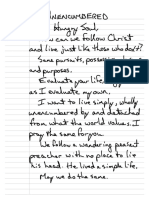 UNENCUMBERED
Hungry Soul,
How can we follow Christ
and live just like those who don't?
Same pursuits, possessions,
and purposes.
Evaluate your life
as I evaluate my own.
I want to live simply, wholly
unencumbered by and detached
from what the world values. I
pray the same for you.
We follow a wandering peasant
preacher with no place to lie
his head. He lived a simple life.
May we do the same.